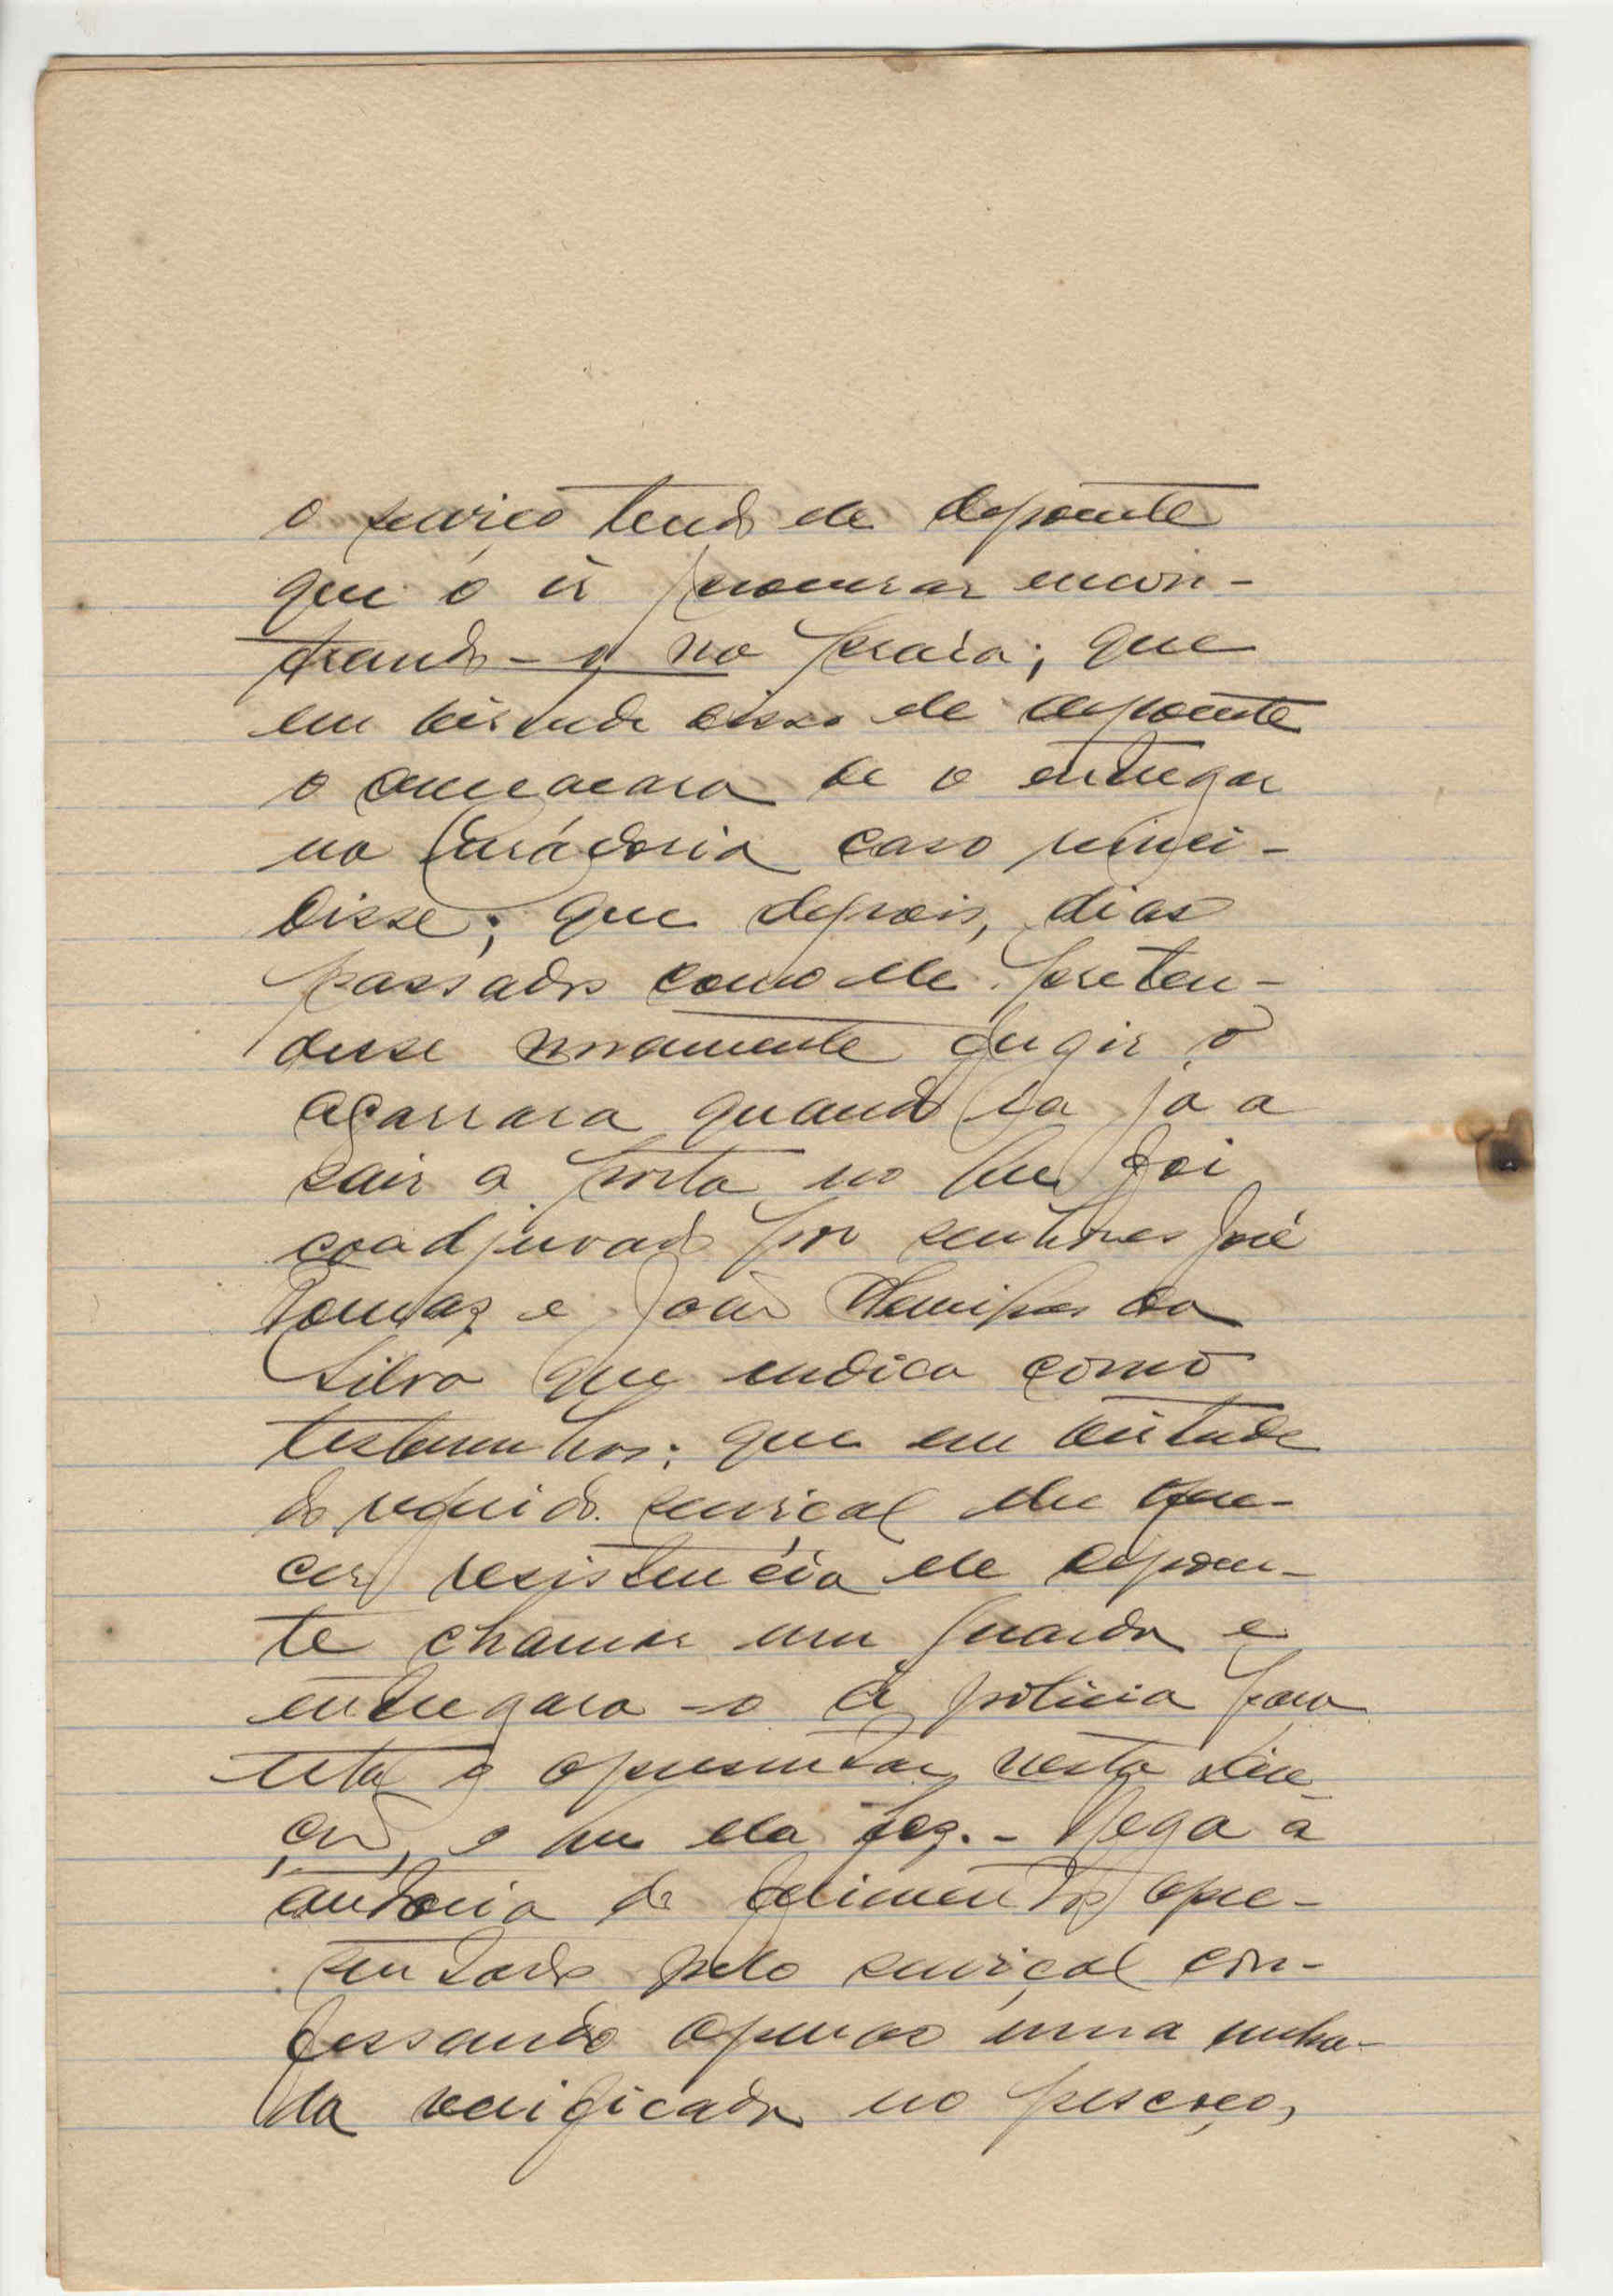 o serviço tendo ele depoente
que o ir procurar encon-
trando-o na praia; que
em virtude disso ele depoente
o ameaçara de o entregar
na Curadoria caso reinci-
disse; que depois, dias
passados como ele preten-
desse novamente fugir o
agarrara quando ia já a
sair a porta no que foi
coadjuvado por senhores José
Tomaz e João da
Silva que indica como
testemunhas; que em virtude
do referido serviçal lhe ofere-
cer resistencia ele depoen-
te chamar um guarda e
entregara-o á policia para
esta o apresentar nesta
o que ela fez. - Nega a
autoria do ferimento apre-
sentado pelo serviçal con-
fessando apenas uma unha-
da verificada no pescoço,